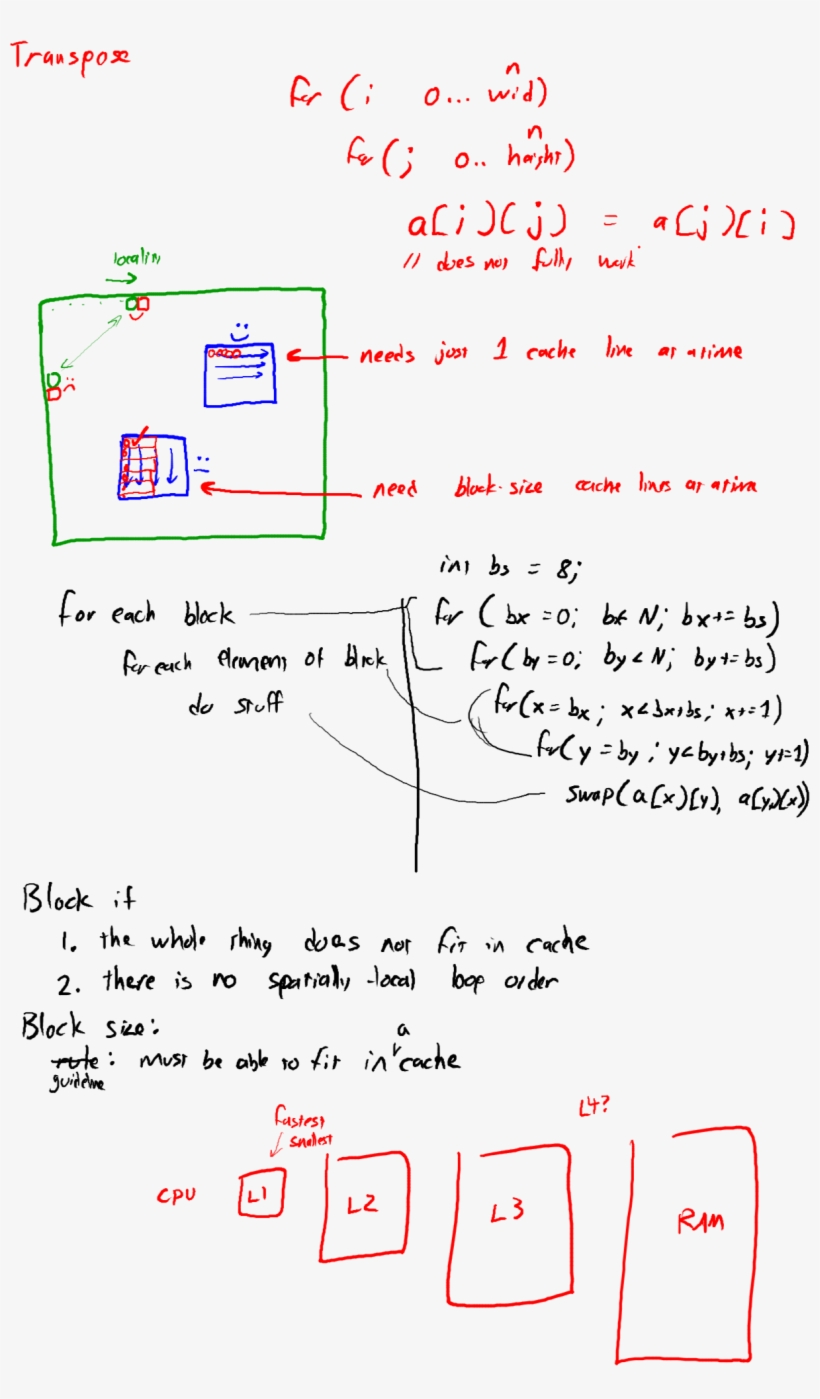 Transpose
n
for (i 0... wid)
n
for (j 0.. height)
a[i][j] = a[j][i]
// does not fully work
locality
needs just 1 cache line at a time
need block-size cache lines at a time
int bs = 8;
for each block
for (bx = 0; bx< N; bx+= bs)
for each element of block
for (by = 0; by < N; by += bs)
do stuff
for(x = bx; x<bx+bs; x+=1)
for(y = by; y<by+bs; y+=1)
swap(a[x][y], a[y][x])
Block if
1. the whole thing does not fit in cache
2. there is no spatially-local loop order
Block size:
a
rule: must be able to fit in cache
guideline
L4?
fastest
smallest
CPU L1 L2 L3 RAM